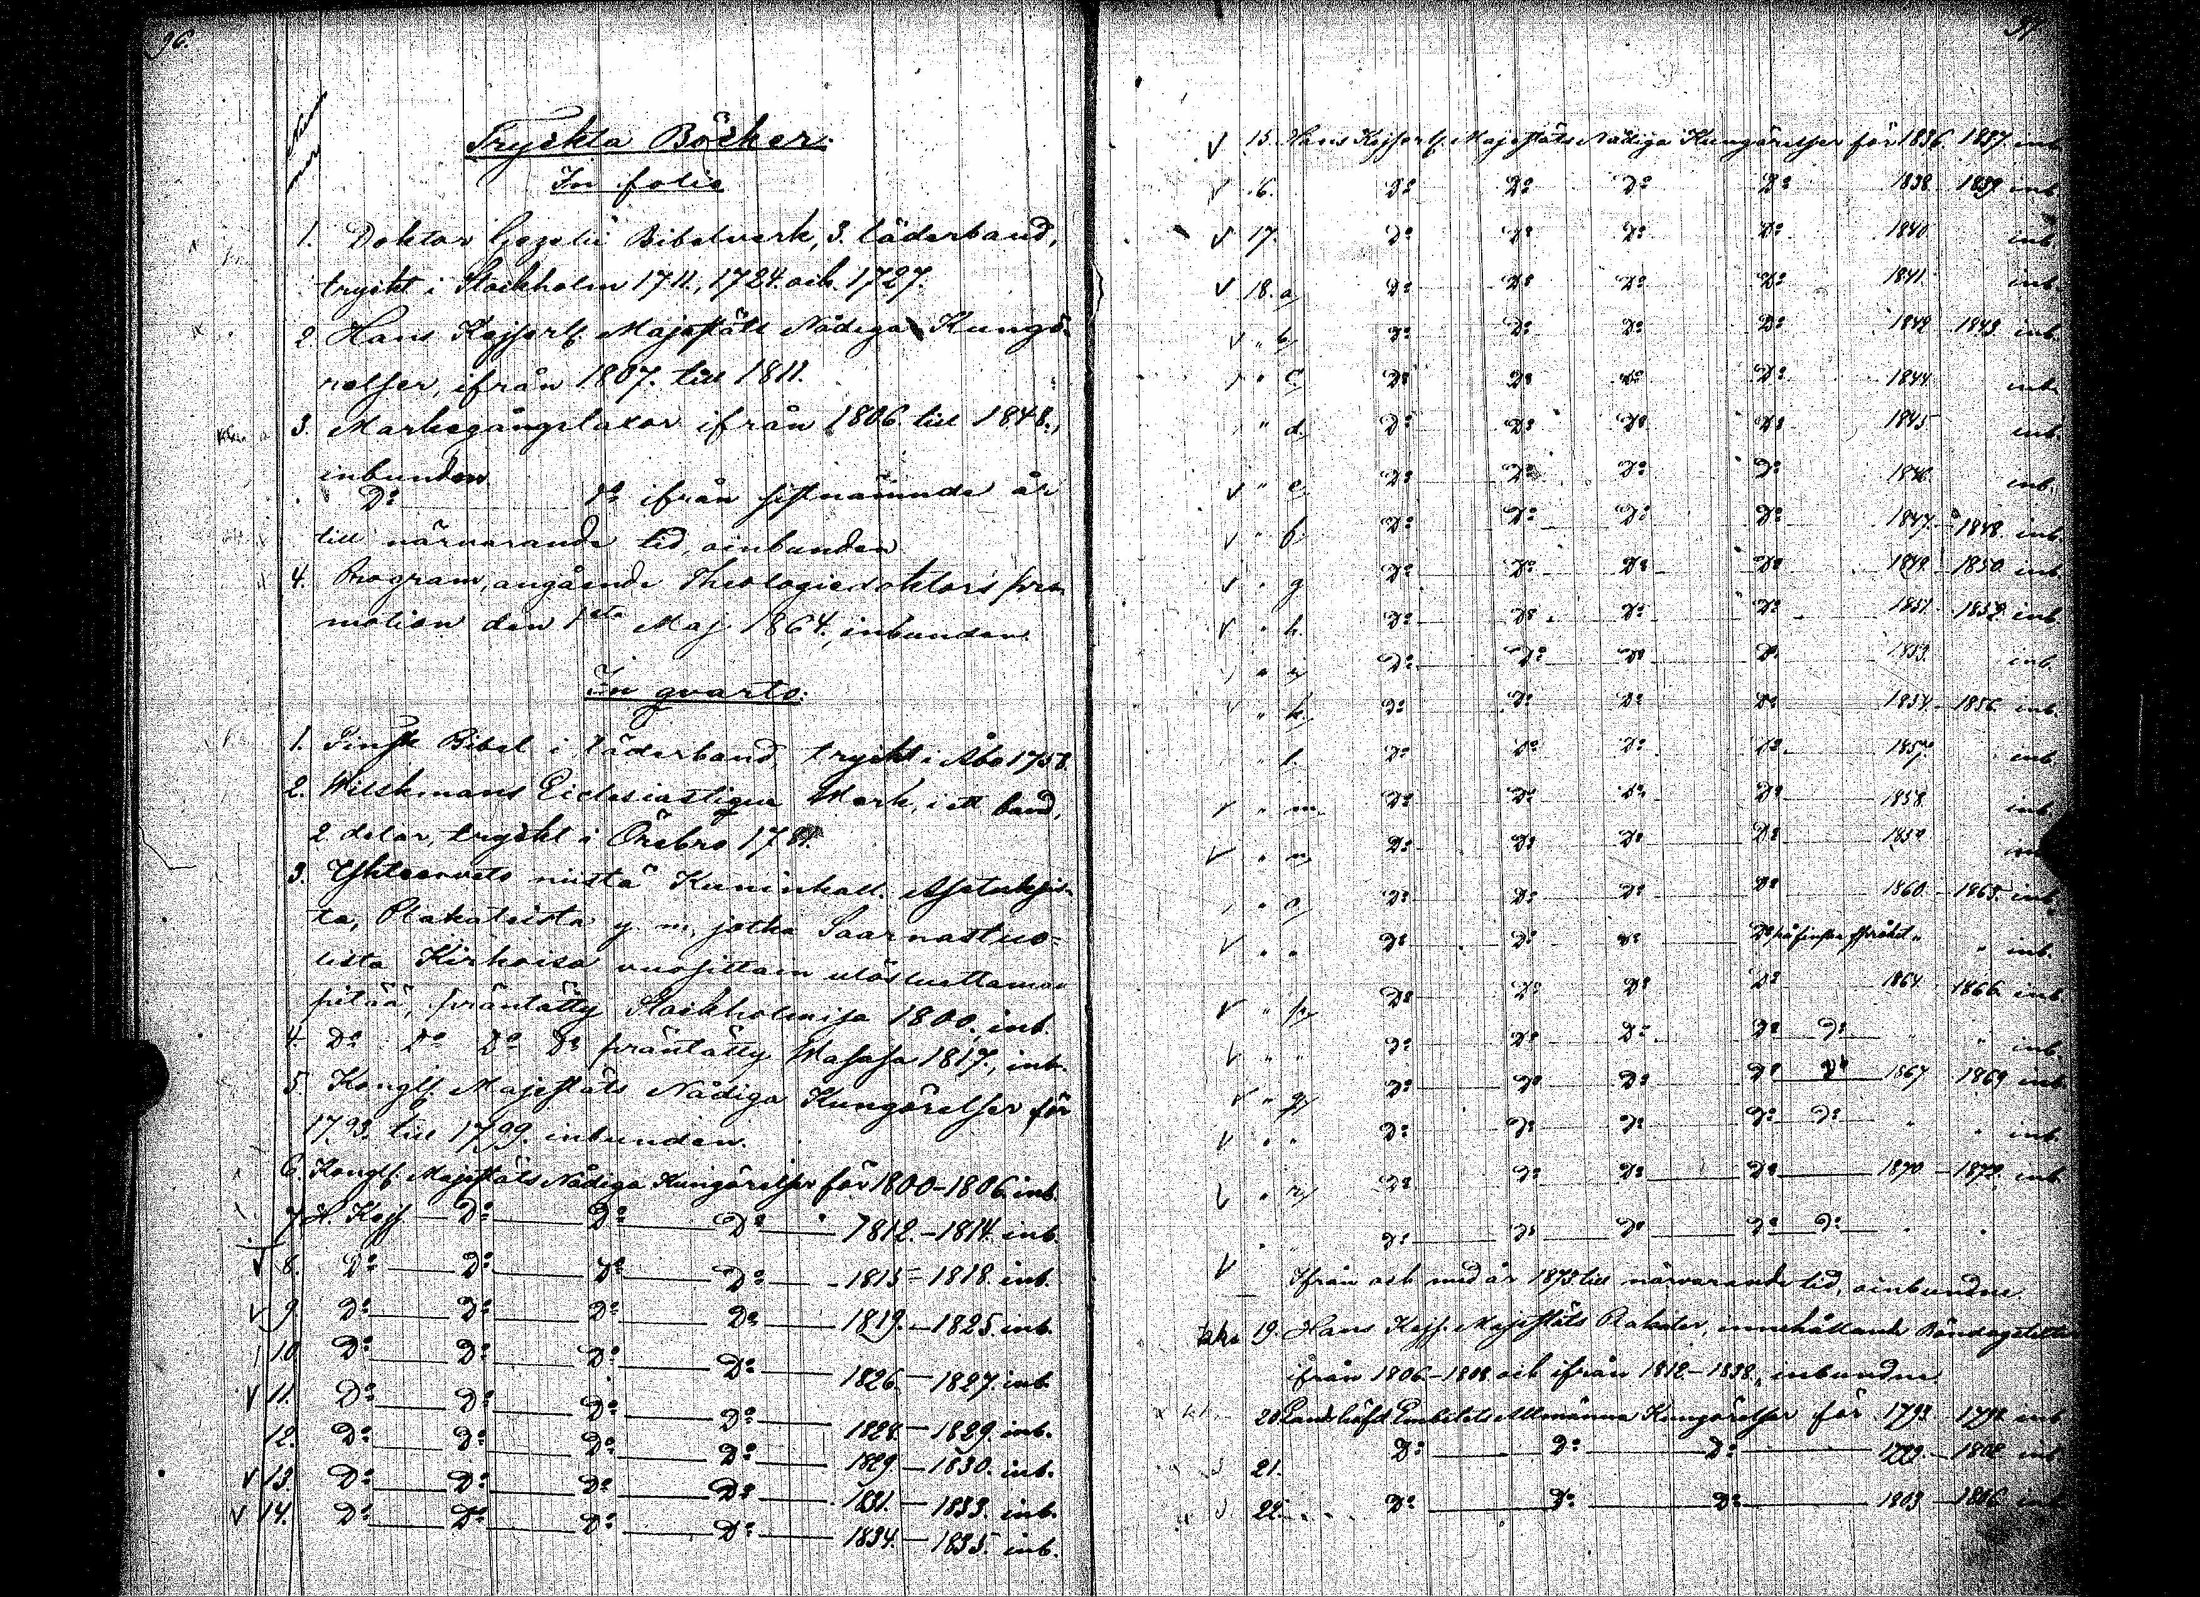 96.
Tryckta Böcker.
In folio
1. Doktor Gezelii Bibelverk, 3. läderband,
tryckt i Stockholm 1711, 1724. och 1727.
2 Hans Kejserl. Majestäts Nådiga Kungö-
relser, ifrån 1807. till 1811.
3. Markegångstaxor ifrån 1806. till 1848.,
inbunden
Do do ifrån sistnämnde år
till närvarande tid, oinbunden
4. Program, angående Theologiedoktors pro-
motion den 1sta Maj 1864., inbunden.
In qvarto.
1. Finsk Bibel i läderband tryckt i Åbo 1758.
2. Wilskmans Eiclesiastique Verk, i ett band,
2 delar, tryckt i Örebro 178
3. Yhteenveto niistä Kuninkall. Asetuksis-
ta, Plakateista y. m. jotka Saarnastuo-
lista Kirkoisa vuosittain ulosluettaman
pitää, präntätty Stockholmisa 1800. inb.
4. Do Do Do Do präntätty Wasasa 1817., inb.
5. Kongl. Majestäts Nådiga Kungörelser för
1793. till 1799. inbunden.
6. Kongl. Majestäts Nådiga Kungörelser för 1800-1806. inb.
7. H. Kejs — Do — Do — Do — 1812. - 1814. inb.
V 8. Do — Do — Do — Do — 1815 - 1818. inb.
V 9. Do — Do — Do — Do — 1819. - 1825. inb.
10. Do — Do — Do — Do — 1826. - 1827. inb.
V 11. Do — Do — Do — Do — 1828. - 1829. inb.
12. Do — Do — Do — Do — 1829 - 1830. inb.
V 13. Do — Do — Do — Do — 1831. - 1833. inb.
V 14. Do — Do — Do — Do — 1834. - 1835. inb.
V 15. Hans Kejserl. Majestäts Nådiga Kungörelser för 1836. 1837. inb
V 16. Do Do Do Do 1838 - 1839 inb.
V 17. Do Do Do Do 1840 inb.
V 18. a) Do Do Do Do 1841. inb.
V " b) Do Do Do Do 1842 - 1843 inb.
" c) Do Do Do Do 1844. inb.
" d) Do Do Do Do 1845 inb.
V " e. Do Do Do Do 1846. inb.
V " f. Do Do Do Do 1847. - 1848. inb.
V " g Do Do Do Do 1849. - 1850 inb.
V " h. Do Do Do Do 1851. 1852 inb.
" i) Do Do Do Do 1853. inb.
V " k. Do Do Do Do 1854. - 1856 inb.
" l. Do Do Do Do 1857 inb.
V " m. Do Do Do Do 1858. inb.
V " n) Do Do Do Do 1859
" o) Do Do Do Do 1860. - 1863. inb.
V " " Do Do Do Do på finska språket " " inb.
V " p) Do Do Do Do 1864 1866 inb
V " " Do Do Do Do Do " " inb.
V " q) Do Do Do Do Do 1867 1869 inb
V " " Do Do Do Do Do " " inb.
V " r) Do Do Do Do 1870 - 1872. inb
V " Do Do Do Do Do " "
Ifrån och med år 1873 till närvarande tid, oinbundne
19. Hans Kejs. Majestäts Plakater, innehållande Böndagstexter
ifrån 1806-1808 och ifrån 1812-1838., inbundne.
20. Landshöfd. Embetets Allmänna Kungörelser för 1793 - 1798 inb
21. Do — Do — Do — 1799. - 1802 inb
22. Do — Do — Do — 1803 - 1806 inb